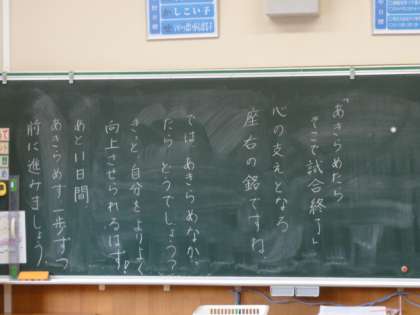 「あきらめたら
そこで試合終了」
心の支えとなる
座右の銘ですね
では、あきらめなかっ
たら どうでしょう？
きっと自分をよりよく
向上させられるはず！
あと11日間
あきらめず一歩ずつ
前に進みましょう。
しこい子